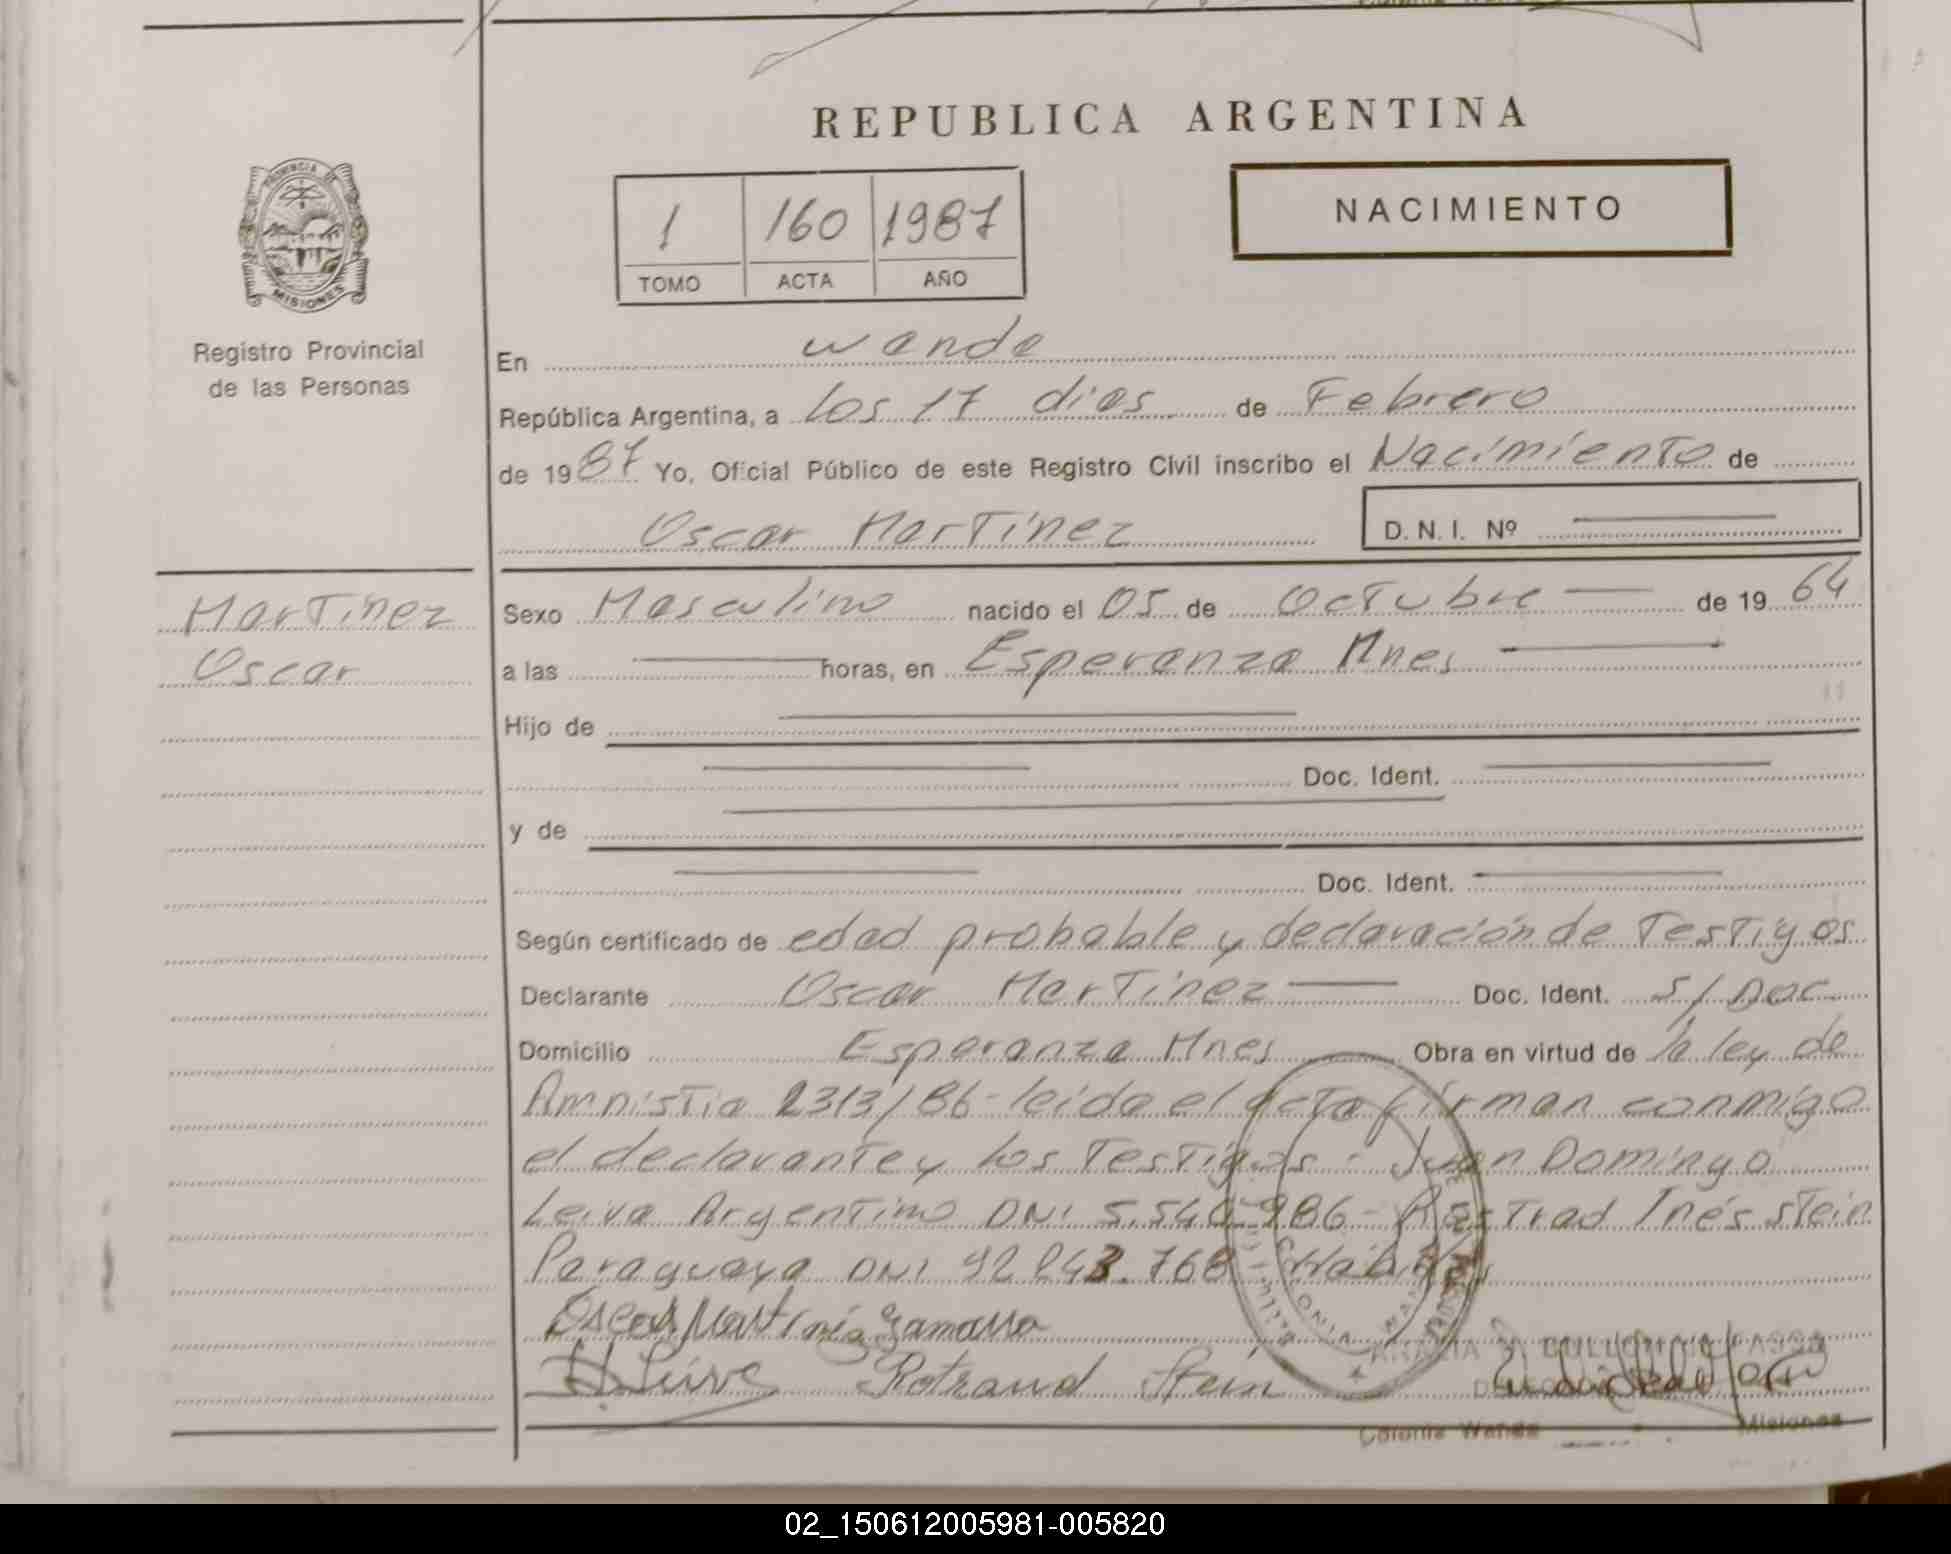 REPUBLICA ARGENTINA
PROVINCIA DE
MISIONES
Registro Provincial
de las Personas
1 160 1987
TOMO ACTA AÑO
NACIMIENTO
En Wanda
República Argentina, a los 17 dias de Febrero
de 1987 Yo, Oficial Público de este Registro Civil inscribo el Nacimiento de
Oscar Martinez D. N. I. Nº
Martinez
Oscar
Sexo Masculino nacido el 05 de Octubre de 1964
a las horas, en Esperanza Mnes
Hijo de
Doc. Ident.
y de
Doc. Ident.
Según certificado de edad probable y declaración de Testigos
Declarante Oscar Martinez Doc. Ident. S/Doc
Domicilio Esperanza Mnes Obra en virtud de la ley de
Amnistia 2313/86 - leida el acta firman conmigo
el declarante y los Testigos - Juan Domingo
Leiva Argentino DNI 5.540.986 - Inés Stein
Paraguaya DNI 92 243.768 -
Oscar Martinez
Rotraud Stein
Colonia Wanda Misiones
02_150612005981-005820